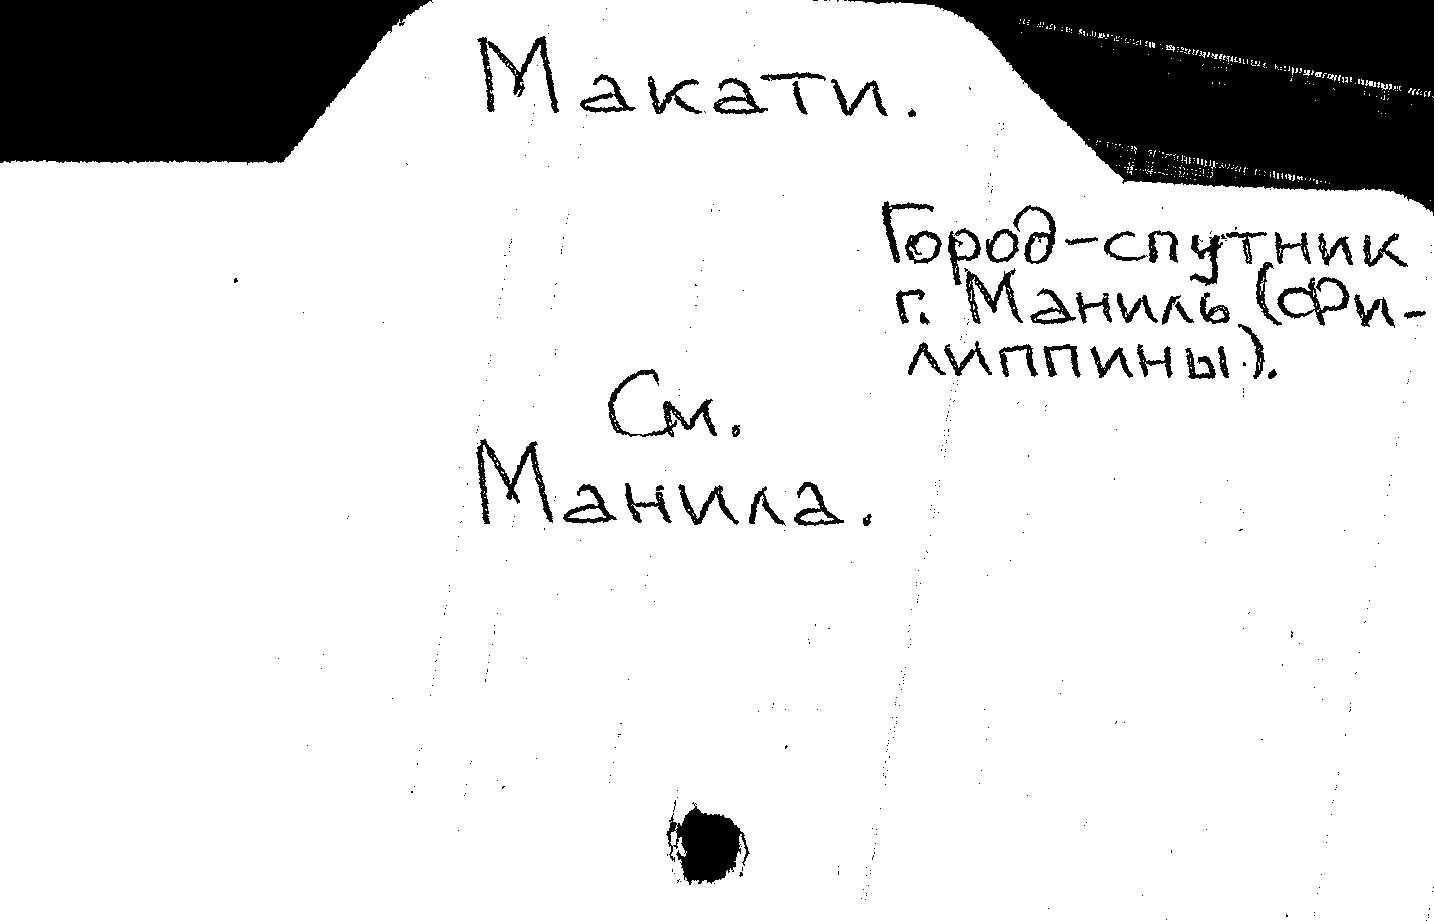 Макати.
Город-спутник
г. Маниль (Фи-
липпины).
См.
Манила.